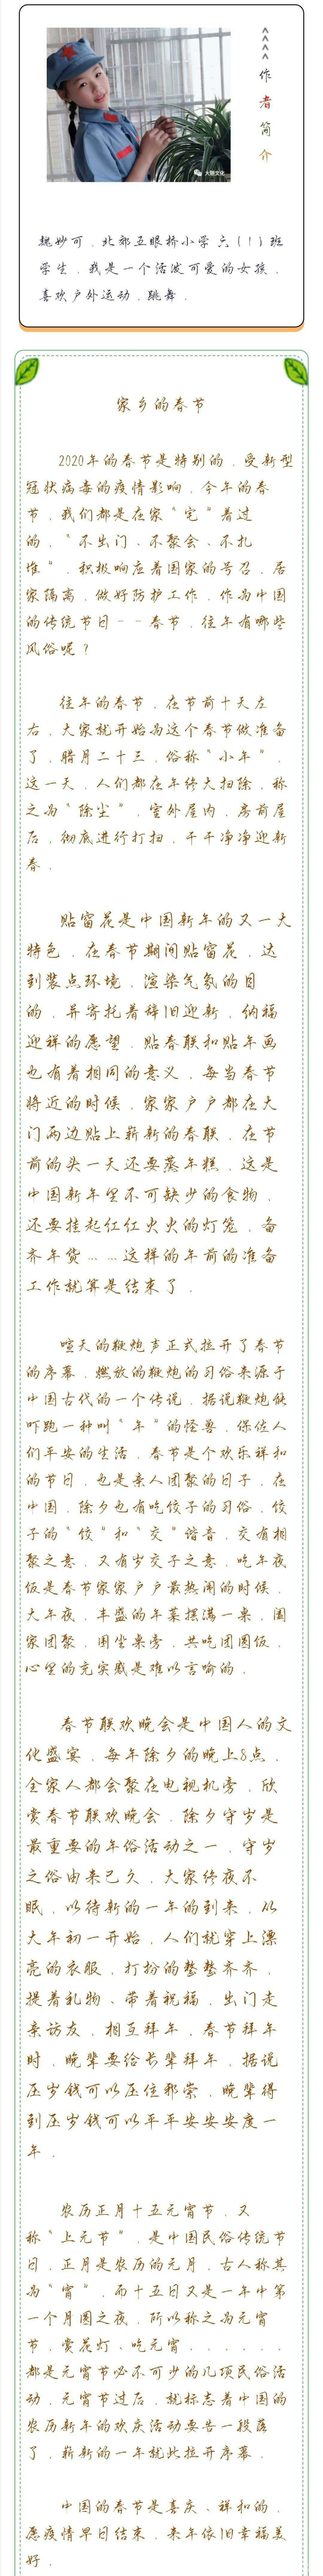 作
者
简
介
大狼文化
魏妙可，北郊五眼桥小学六（1）班
学生，我是一个活泼可爱的女孩，
喜欢户外运动，跳舞．
家乡的春节
2020年的春节是特别的，受新型
冠状病毒的疫情影响，今年的春
节，我们都是在家“宅”着过
的，“不出门、不聚会、不扎
堆”，积极响应着国家的号召，居
家隔离，做好防护工作．作为中国
的传统节日－－春节，往年有哪些
风俗呢？
往年的春节，在节前十天左
右，大家就开始为这个春节做准备
了．腊月二十三，俗称“小年”，
这一天，人们都在年终大扫除，称
之为“除尘”，室外屋内，房前屋
后，彻底进行打扫，干干净净迎新
春．
贴窗花是中国新年的又一大
特色，在春节期间贴窗花，达
到装点环境，渲染气氛的目
的，并寄托着辞旧迎新，纳福
迎祥的愿望．贴春联和贴年画
也有着相同的意义，每当春节
将近的时候，家家户户都在大
门两边贴上崭新的春联．在节
前的头一天还要蒸年糕，这是
中国新年里不可缺少的食物，
还要挂起红红火火的灯笼，备
齐年货……这样的年前的准备
工作就算是结束了．
喧天的鞭炮声正式拉开了春节
的序幕，燃放的鞭炮的习俗来源于
中国古代的一个传说，据说鞭炮能
吓跑一种叫“年”的怪兽，保佐人
们平安的生活．春节是个欢乐祥和
的节日，也是亲人团聚的日子，在
中国，除夕也有吃饺子的习俗，饺
子的“饺”和“交”谐音，交有相
聚之意，又有岁交子之意．吃年夜
饭是春节家家户户最热闹的时候，
大年夜，丰盛的年菜摆满一桌，阖
家团聚，围坐桌旁，共吃团圆饭，
心里的充实感是难以言喻的．
春节联欢晚会是中国人的文
化盛宴，每年除夕的晚上8点，
全家人都会聚在电视机旁，欣
赏春节联欢晚会．除夕守岁是
最重要的年俗活动之一，守岁
之俗由来已久，大家终夜不
眠，以待新的一年的到来．从
大年初一开始，人们就穿上漂
亮的衣服，打扮的整整齐齐，
提着礼物、带着祝福，出门走
亲访友，相互拜年．春节拜年
时，晚辈要给长辈拜年，据说
压岁钱可以压住邪祟，晚辈得
到压岁钱可以平平安安安度一
年．
农历正月十五元宵节，又
称“上元节”，是中国民俗传统节
日，正月是农历的元月，古人称其
为“宵”，而十五日又是一年中第
一个月圆之夜，所以称之为元宵
节，赏花灯、吃元宵．．．．．．
都是元宵节必不可少的几项民俗活
动．元宵节过后，就标志着中国的
农历新年的欢庆活动要告一段落
了，崭新的一年就此拉开序幕．
中国的春节是喜庆、祥和的，
愿疫情早日结束，来年依旧幸福美
好．